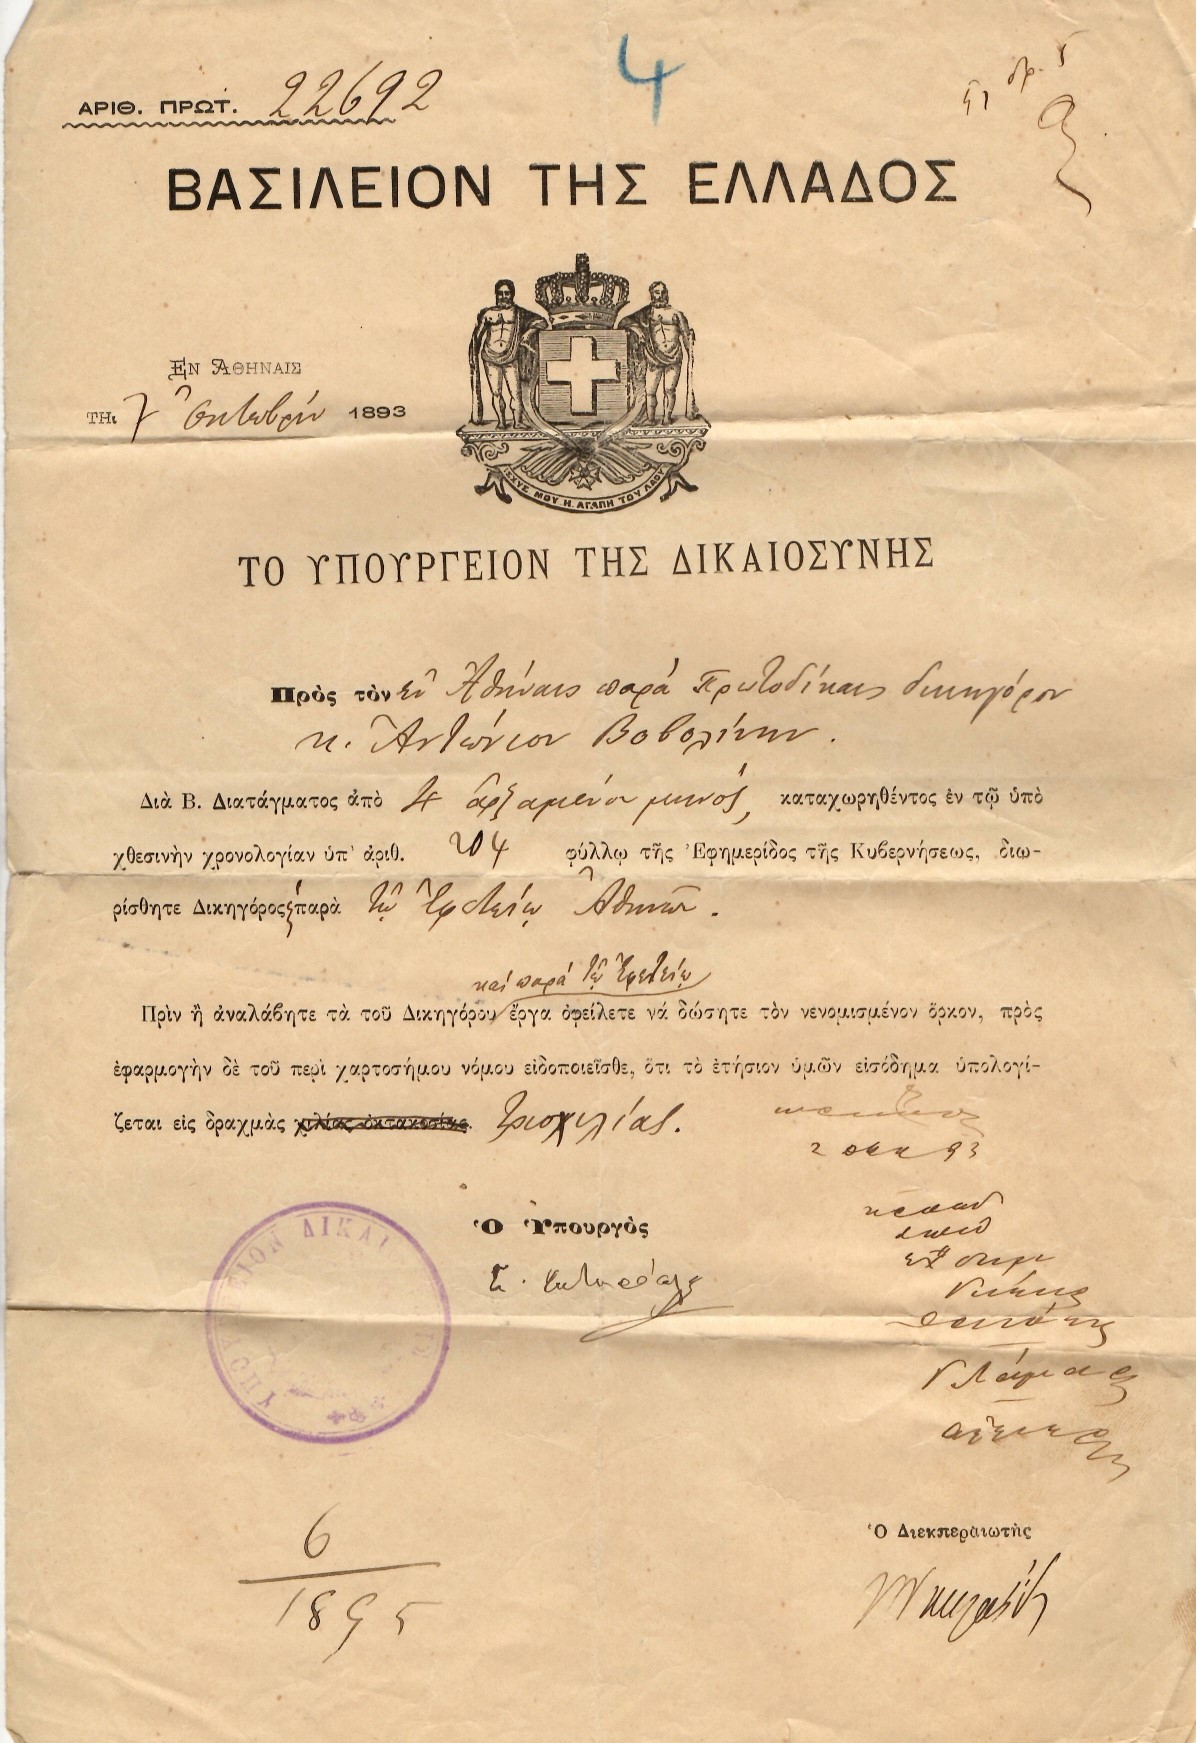 4
ΑΡΙΘ. ΠΡΩΤ. 22692
ΒΑΣΙΛΕΙΟΝ ΤΗΣ ΕΛΛΑΔΟΣ
ΕΝ ΑΘΗΝΑΙΣ
ΤΗι 7 Ὀκτωβρίου 1893
ΙΣΧΥΣ ΜΟΥ Η ΑΓΑΠΗ ΤΟΥ ΛΑΟΥ
ΤΟ ΥΠΟΥΡΓΕΙΟΝ ΤΗΣ ΔΙΚΑΙΟΣΥΝΗΣ
Πρὸς τὸν ἐν Ἀθήναις παρὰ Πρωτοδίκαις δικηγόρον
κ. Ἀντώνιον Βοβολίνην.
Διὰ Β. Διατάγματος ἀπὸ 4 ἀρξαμένου μηνός, καταχωρηθέντος ἐν τῷ ὑπὸ
χθεσινὴν χρονολογίαν ὑπ' ἀριθ. 204 φύλλῳ τῆς Ἐφημερίδος τῆς Κυβερνήσεως, διω-
ρίσθητε Δικηγόρος παρὰ τῷ Ἐφετείῳ Ἀθηνῶν.
καὶ παρὰ τῷ Ἐφετείῳ
Πρὶν ἢ ἀναλάβητε τὰ τοῦ Δικηγόρου ἔργα ὀφείλετε νά δώσητε τὸν νενομισμένον ὅρκον, πρὸς
ἐφαρμογὴν δὲ τοῦ περὶ χαρτοσήμου νόμου εἰδοποιεῖσθε, ὅτι τὸ ἐτήσιον ὑμῶν εἰσόδημα ὑπολογί-
ζεται εἰς δραχμὰς χιλίας ὀκτακοσίας. τρισχιλίας.
Ὁ Ὑπουργὸς
ΥΠΟΥ ΕΙΟΝ ΔΙΚΑΙ
Ὁ Διεκπεραιωτὴς
6
1895